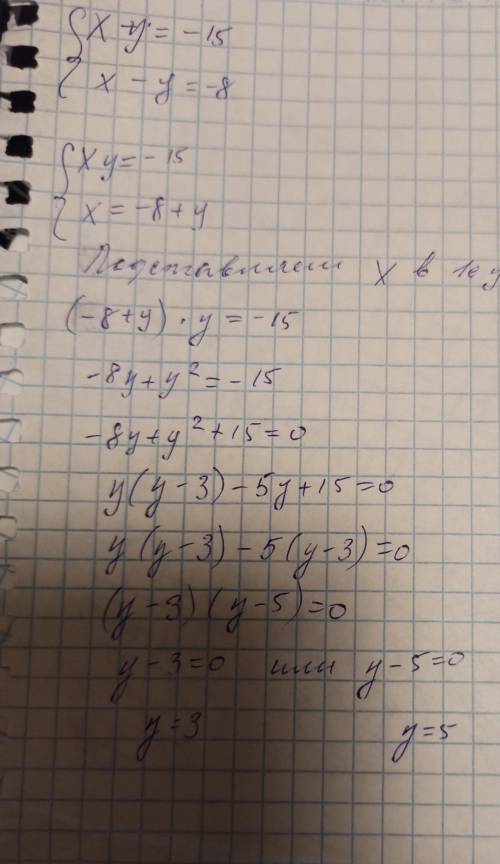 { x · y = -15
{ x - y = -8
{ xy = -15
{ x = -8 + y
Подставляем x в 1е у
(-8+y) · y = -15
-8y + y² = -15
-8y + y² + 15 = 0
y(y-3) - 5y + 15 = 0
y(y-3) - 5(y-3) = 0
(y-3)(y-5) = 0
y-3=0 или y-5=0
y=3 y=5